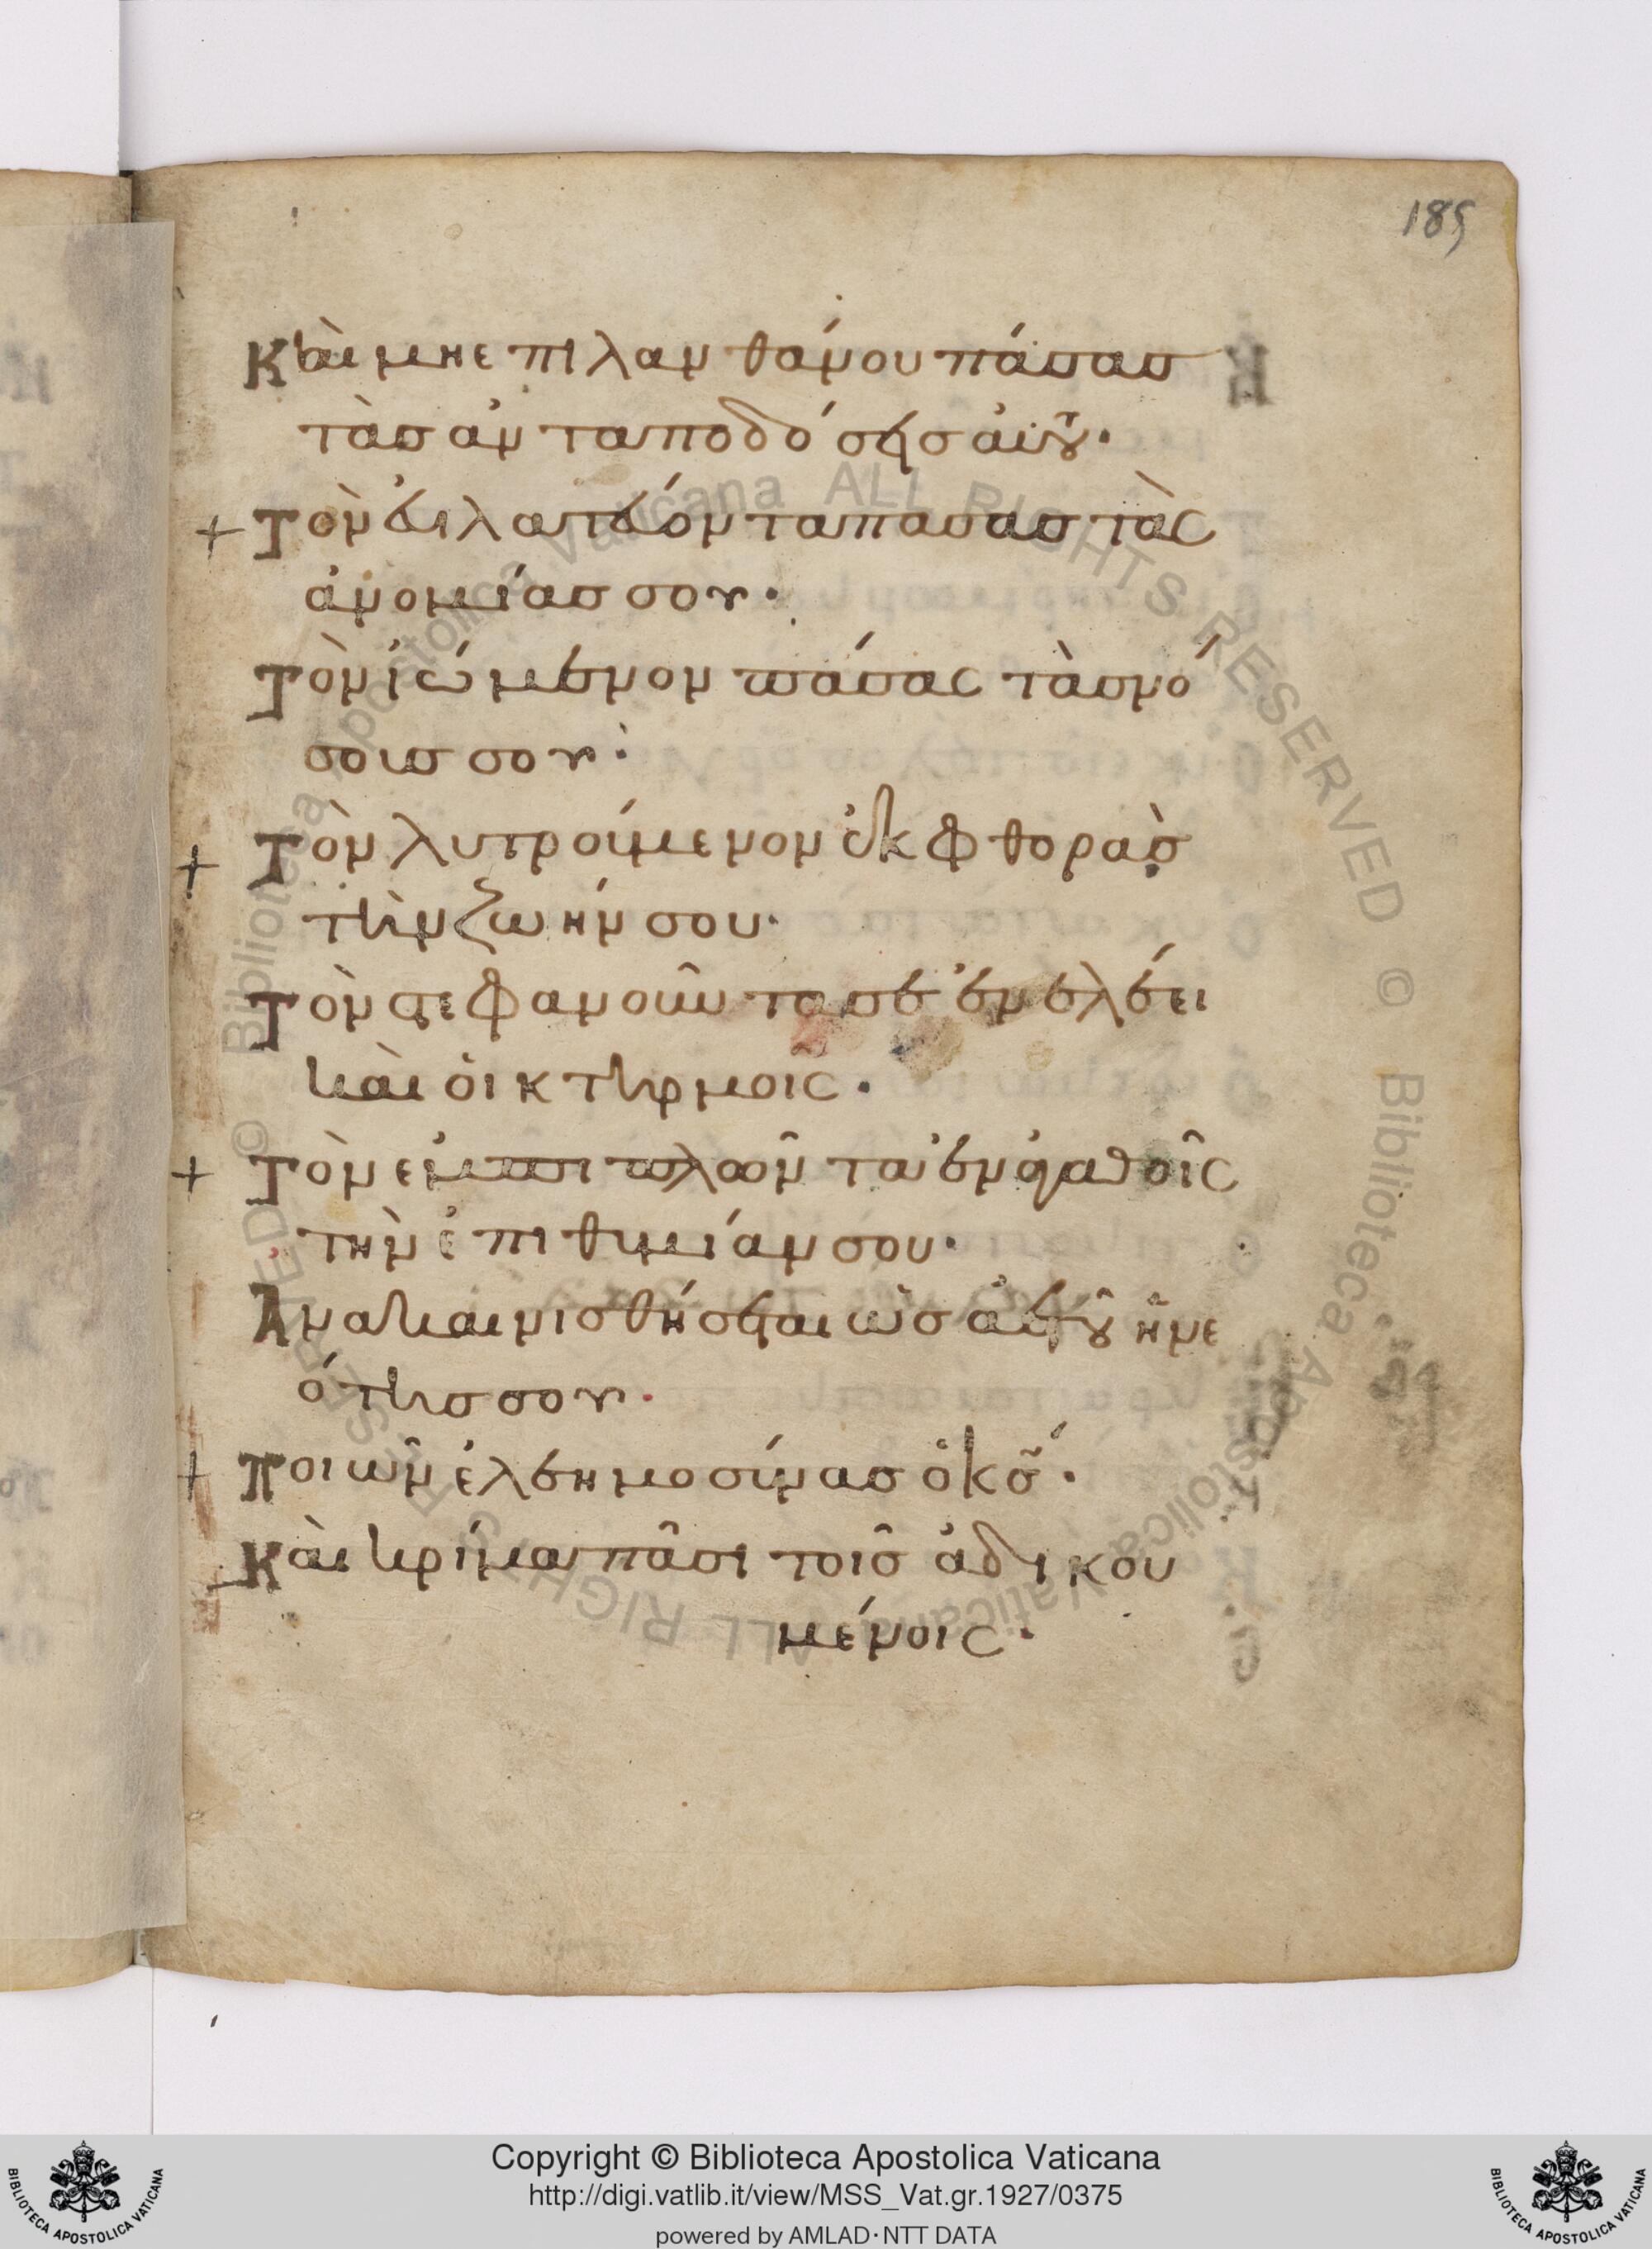 189
Καὶ μὴ ἐπιλανθάνου πάσας
τὰς ἀνταποδόσης ἀυτοῦ·
+ Τὸν ἑϊλατέυόντα πασας τὰς
ἀνομίας σου·
Τὸν ϊώμενον πάσας τὰσ νό
σοισ σου·
+ Τὸν λυτρούμενον ἐκ φθορὰς
τὴν ζωήν σου·
Τὸν στεφανοῦντα σε ἐν ἐλέει
καὶ ὀικτηρμοῖς·
+ Τὸν ἐμπιπλῶντα ἐν ἀγαθοῖς
τὴν ἐπιθυμίαν σου·
Ἀνακαινισθήσεται ὡσ ἀετοῦ ἡ νε
ότησ σου·
+ Ποιῶν ἐλεημοσύνας ὁ κς·
Καὶ κρίμα πᾶσι τοῖς ἀδικου
μένοις·
Copyright © Biblioteca Apostolica Vaticana
http://digi.vatlib.it/view/MSS_Vat.gr.1927/0375
powered by AMLAD·NTT DATA
BIBLIOTECA APOSTOLICA VATICANA
BIBLIOTECA APOSTOLICA VATICANA
© Biblioteca Apostolica Vaticana ALL RIGHTS RESERVED
© Biblioteca Apostolica Vaticana ALL RIGHTS RESERVED